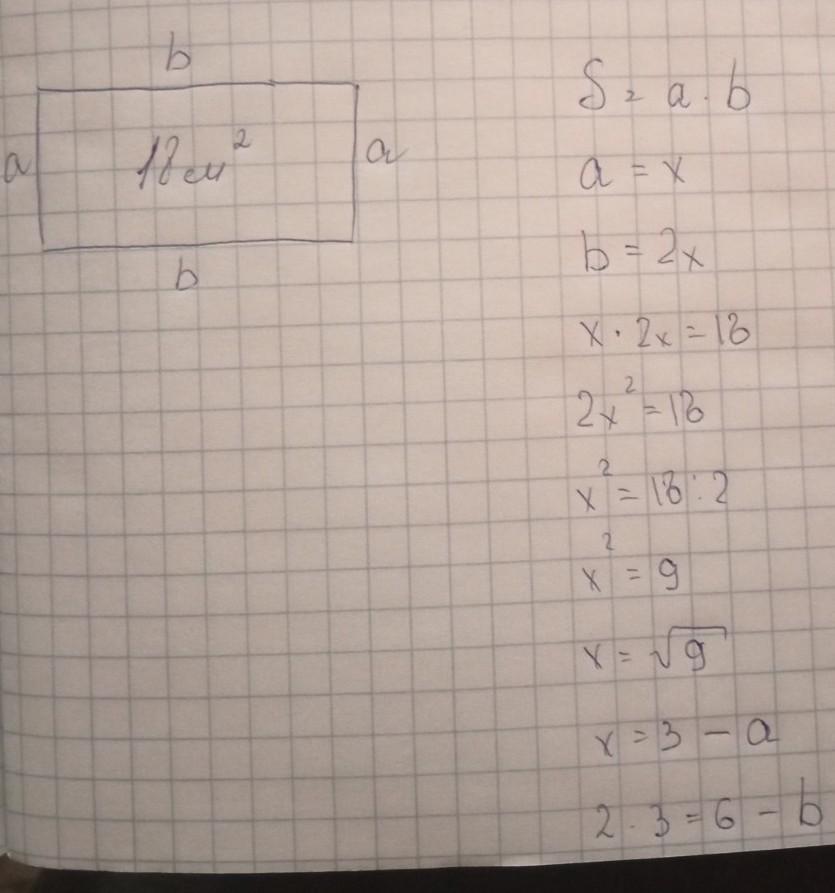 b
a 18 см² a
b
S = a · b
a = x
b = 2x
x · 2x = 18
2x² = 18
x² = 18 : 2
x² = 9
x = √9
x = 3 – a
2 · 3 = 6 – b